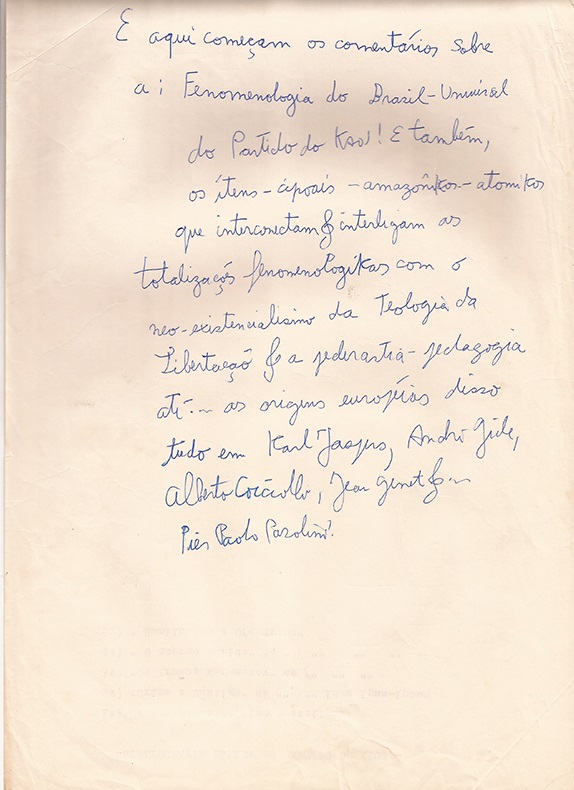 E aqui começam os comentários sobre
a: Fenomenologia do Brazil-Universal
do Partido do Kaos! E também,
os ítens - - amazônikos - atomikos
que interconectam & interligam as
totalizaçõs fenomenologikas com o
neo-existencialismo da Teologia da
Libertaçaõ & a pederastia-pedagogia
até... as origens européias disso
tudo em Karl Jaspers, André Gide,
Alberto , Jean Genet & ...
Pier Paolo Pasolini!